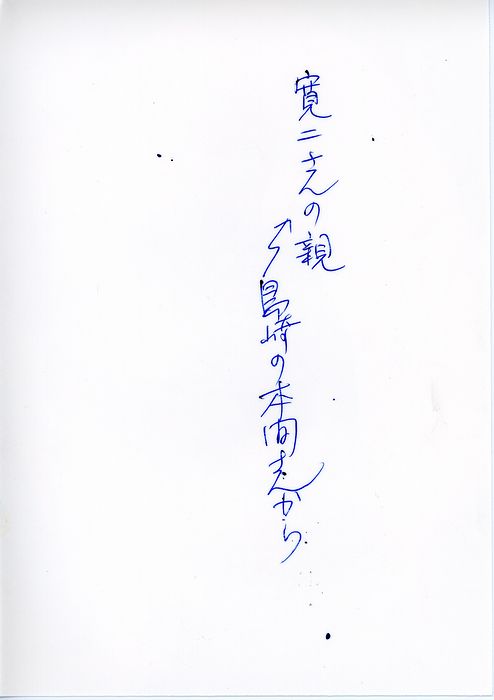 寛二さんの親
島崎の本間さんから